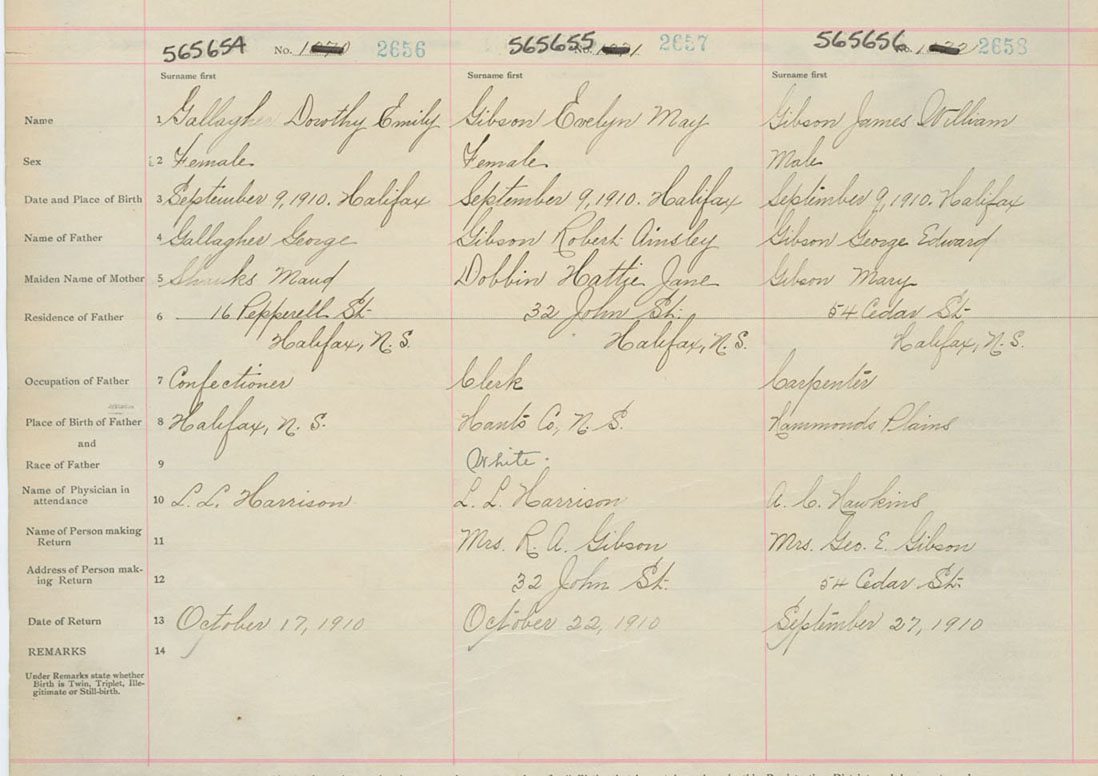 565654 No. 2656 565655 No. 2657 565656 No. 2658
Surname first Surname first Surname first
Name 1 Gallagher Dorothy Emily Gibson Evelyn May Gibson James William
Sex 2 Female Female Male
Date and Place of Birth 3 September 9, 1910. Halifax September 9, 1910. Halifax September 9, 1910. Halifax
Name of Father 4 Gallagher George Gibson Robert Ainsley Gibson George Edward
Maiden Name of Mother 5 Maud Dobbin Hattie Jane Gibson Mary
Residence of Father 6 16 Pepperell St. 32 John St. 54 Cedar St.
Halifax, N.S. Halifax, N.S. Halifax, N.S.
Occupation of Father 7 Confectioner Clerk Carpenter
Place of Birth of Father 8 Halifax, N.S. Hants Co, N.S. Hammonds Plains
and
Race of Father 9 White.
Name of Physician in
attendance 10 L. L. Harrison L. L. Harrison A. C. Hawkins
Name of Person making
Return 11 Mrs. R. A. Gibson Mrs. Geo. E. Gibson
Address of Person mak-
ing Return 12 32 John St. 54 Cedar St.
Date of Return 13 October 17, 1910 October 22, 1910 September 27, 1910
REMARKS 14
Under Remarks state whether
Birth is Twin, Triplet, Ille-
gitimate or Still-birth.